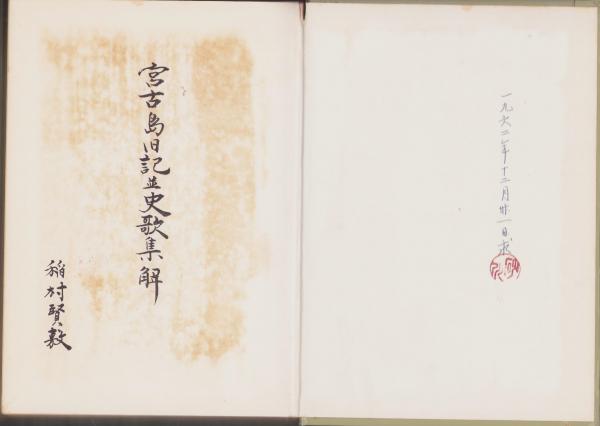 宮古島旧記並史歌集解
稲村賢敷
一九六二年十二月廿一日求